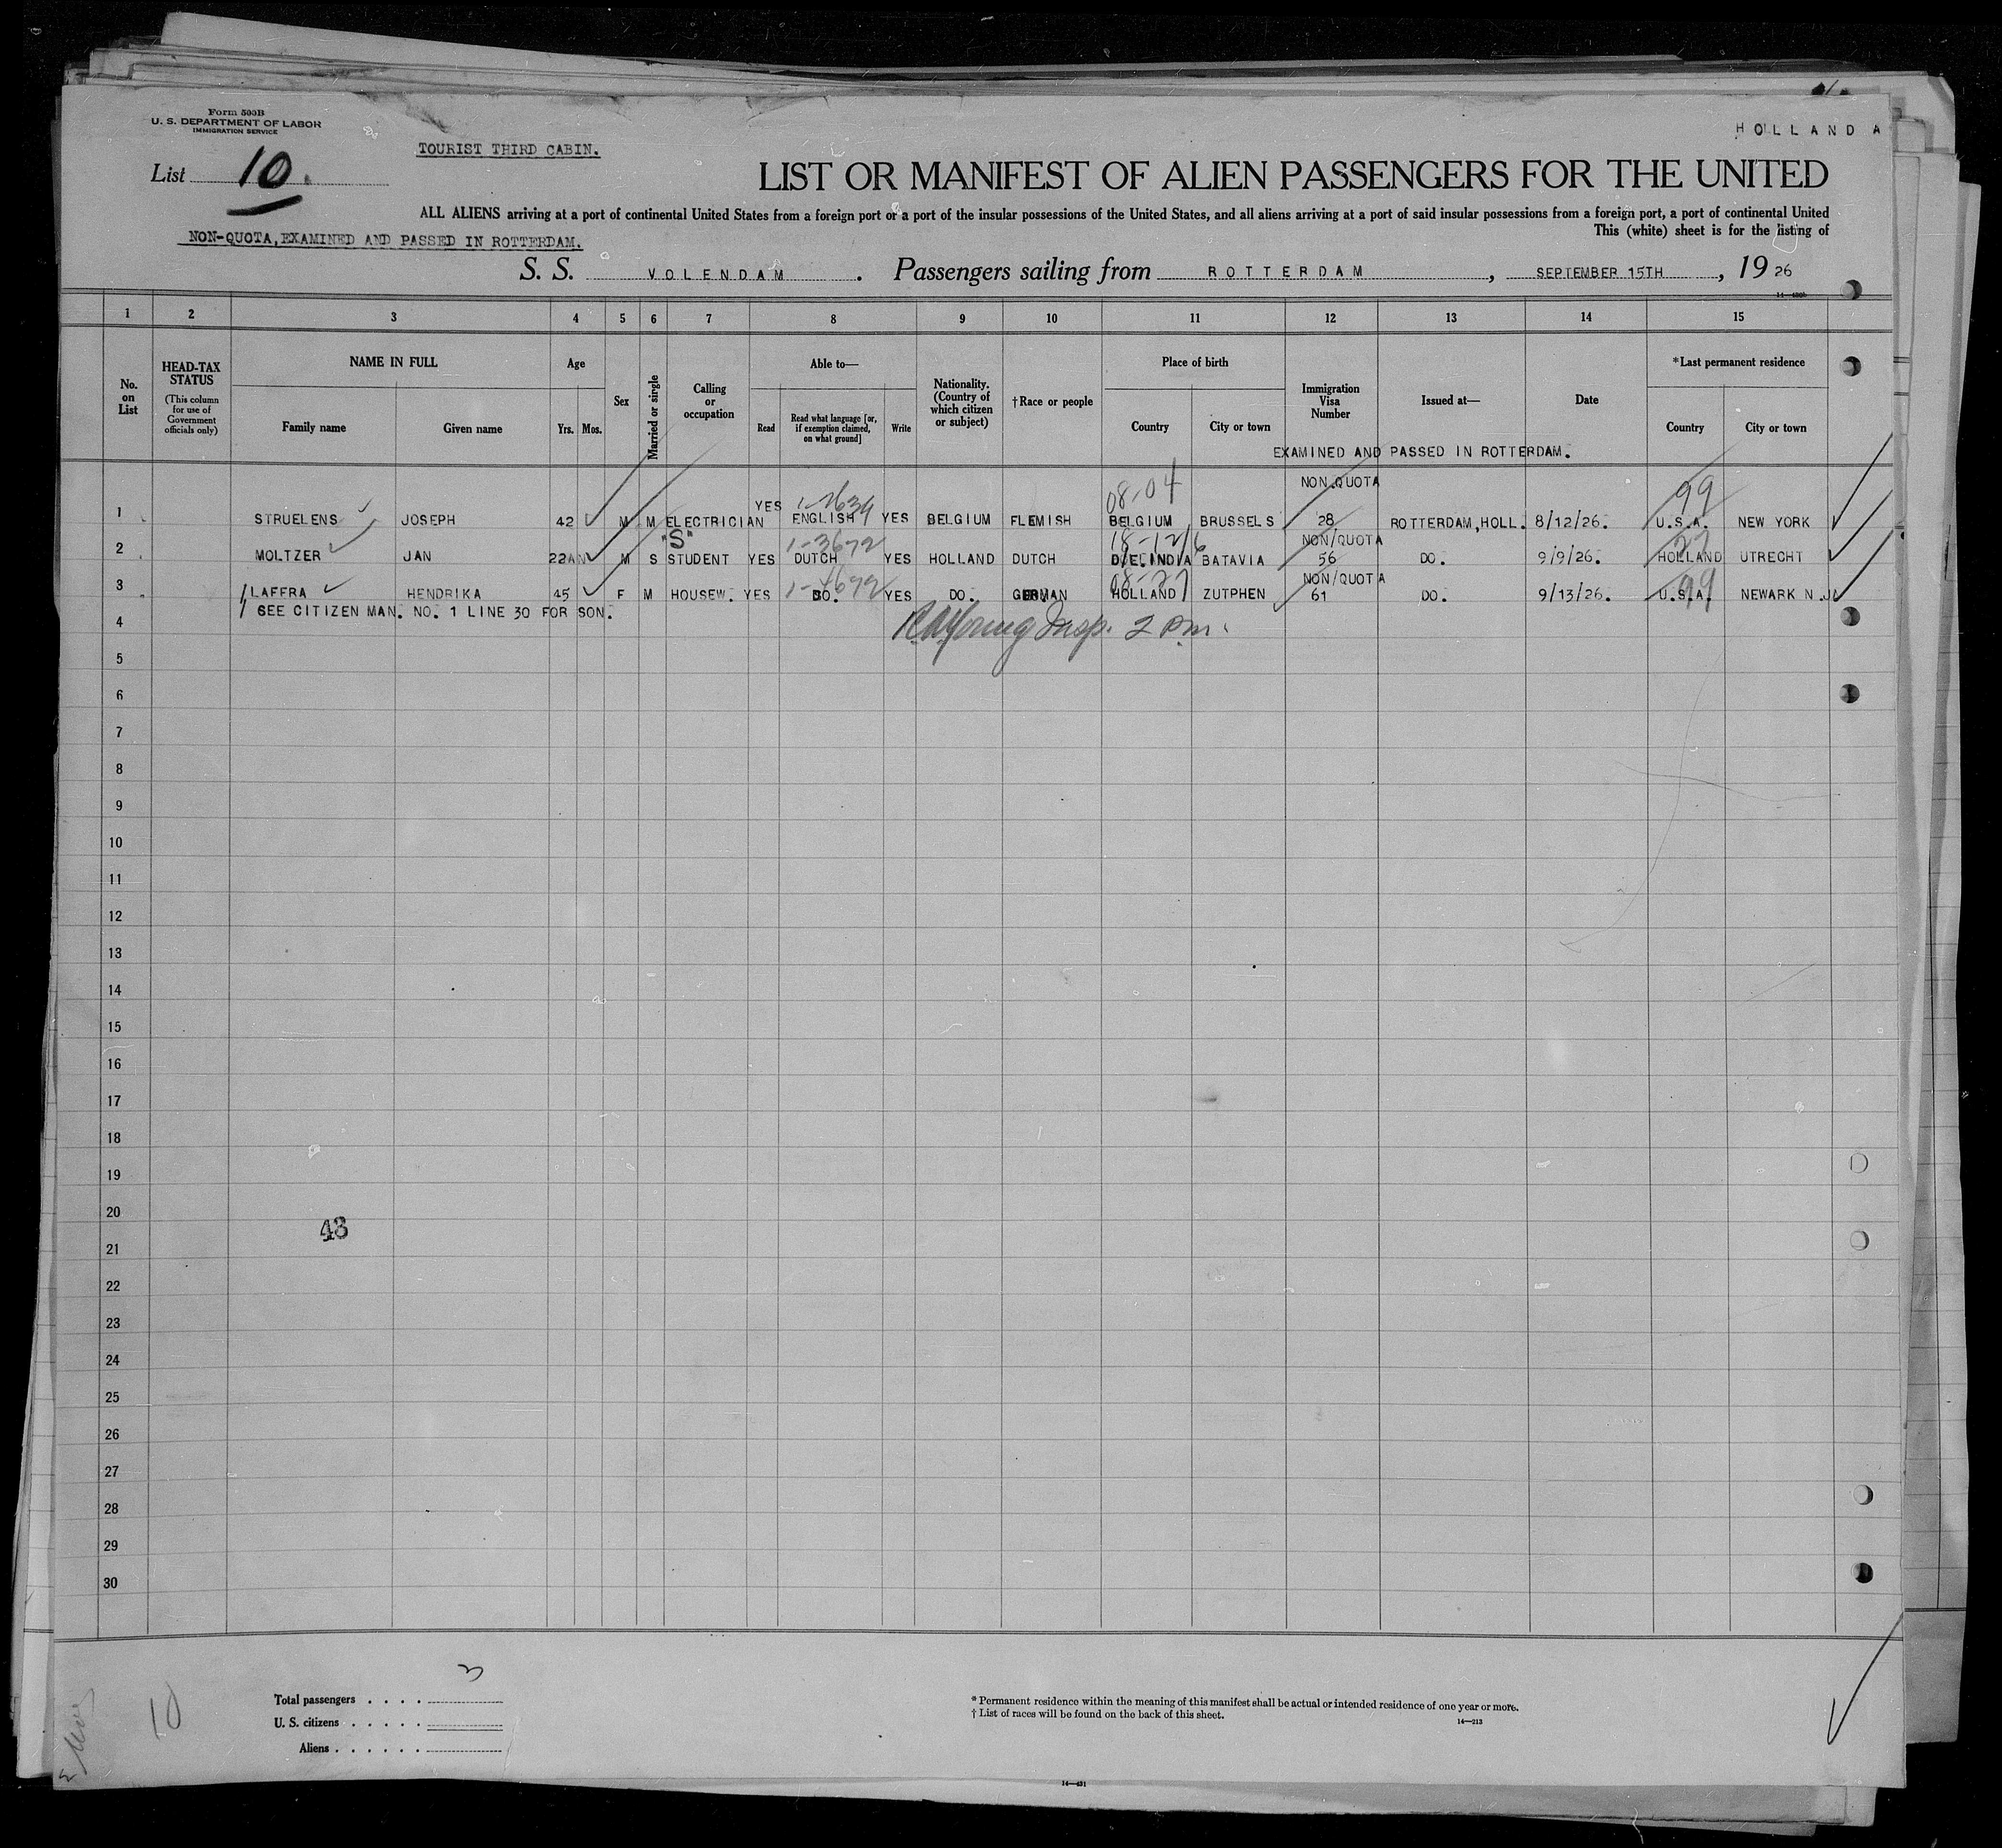 Form 500B
U. S. DEPARTMENT OF LABOR
IMMIGRATION SERVICE
HOLLAND A
TOURIST THIRD CABIN.
List 10.
LIST OR MANIFEST OF ALIEN PASSENGERS FOR THE UNITED
ALL ALIENS arriving at a port of continental United States from a foreign port or a port of the insular possessions of the United States, and all aliens arriving at a port of said insular possessions from a foreign port, a port of continental United
This (white) sheet is for the listing of
NON-QUOTA, EXAMINED AND PASSED IN ROTTERDAM.
S. S. VOLENDAM . Passengers sailing from ROTTERDAM , SEPTEMBER 15TH , 19 26
1 2 3 4 5 6 7 8 9 10 11 12 13 14 15
No. on List
HEAD-TAX STATUS
(This column for use of Government officials only)
NAME IN FULL
Family name Given name
Age
Yrs. Mos.
Sex
Married or single
Calling or occupation
Able to—
Read
Read what language [or, if exemption claimed, on what ground]
Write
Nationality. (Country of which citizen or subject)
†Race or people
Place of birth
Country City or town
Immigration Visa Number
Issued at—
Date
*Last permanent residence
Country City or town
EXAMINED AND PASSED IN ROTTERDAM.
08-04 NON QUOTA 99
1 STRUELENS JOSEPH 42 M M ELECTRICIAN YES ENGLISH YES BELGIUM FLEMISH BELGIUM BRUSSELS 28 ROTTERDAM, HOLL. 8/12/26. U.S.A. NEW YORK
"S" 1-3672 NON/QUOTA 27
2 MOLTZER JAN 22 M S STUDENT YES DUTCH YES HOLLAND DUTCH D/E. INDIA BATAVIA 56 DO. 9/9/26. HOLLAND UTRECHT
08-27 NON/QUOTA 99
3 LAFFRA HENDRIKA 45 F M HOUSEW. YES DO. YES DO. GERMAN HOLLAND ZUTPHEN 61 DO. 9/13/26. U.S.A. NEWARK N.J.
SEE CITIZEN MAN. NO. 1 LINE 30 FOR SON.
4 Young Insp. 2 pm.
5
6
7
8
9
10
11
12
13
14
15
16
17
18
19
20
43
21
22
23
24
25
26
27
28
29
30
10
Total passengers . . . . 3
U. S. citizens . . . . .
Aliens . . . . . .
* Permanent residence within the meaning of this manifest shall be actual or intended residence of one year or more.
† List of races will be found on the back of this sheet.
14—213
14—431